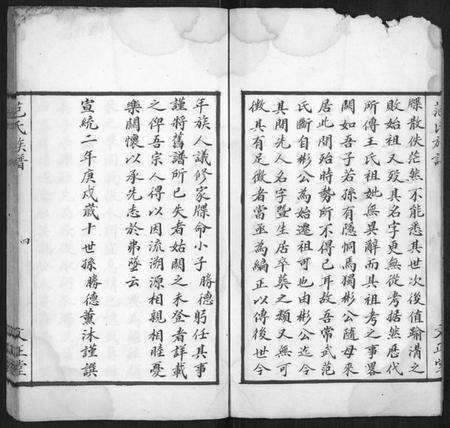 牒散佚茫然不能悉其世次復值踰溝之
敗始祖又歿其名字更無從考据然歷代
所傳王氏祖妣無異辭而其祖考之事畧
闕如吾子若孫有隱恫焉獨彬公隨母來
居此間殆時勢所不得已耳故吾常武范
氏斷自彬公為始遷祖可也由彬公迄今
其間先人名字暨生居卒葬之類又無可
徵其有足徵者當亟為編正以傳後世今
年族人議修家牒命小子勝德躬任其事
謹將舊譜所已失者姑闕之未登者詳載
之俾吾宗人得以因流溯源相親相睦憂
樂關懷以承先志於弗墜云
宣統二年庚戌歲十世孫勝德薰沐謹譔
范氏族譜
四
文正堂